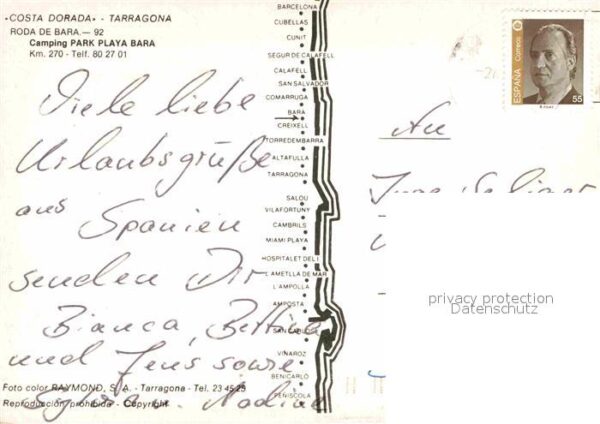 «COSTA DORADA» - TARRAGONA
RODA DE BARA.— 92
Camping PARK PLAYA BARA
Km. 270 - Telf. 80 27 01
Viele liebe
Urlaubsgrüße
aus Spanien
senden Dir
Bianca, Bettina
und Jens sowie
Nadine
Foto color RAYMOND, S. A. - Tarragona - Tel. 23 45 25
Reproducción prohibida - Copyright
BARCELONA
CUBELLAS
CUNIT
SEGUR DE CALAFELL
CALAFELL
SAN SALVADOR
COMARRUGA
BARA
CREIXELL
TORREDEMBARRA
ALTAFULLA
TARRAGONA
SALOU
VILAFORTUNY
CAMBRILS
MIAMI PLAYA
HOSPITALET DEL I
L'AMETLLA DE MAR
L'AMPOLLA
AMPOSTA
SAN CARLOS
VINAROZ
BENICARLÓ
PEÑISCOLA
ESPAÑA
Correos
55
An
privacy protection
Datenschutz